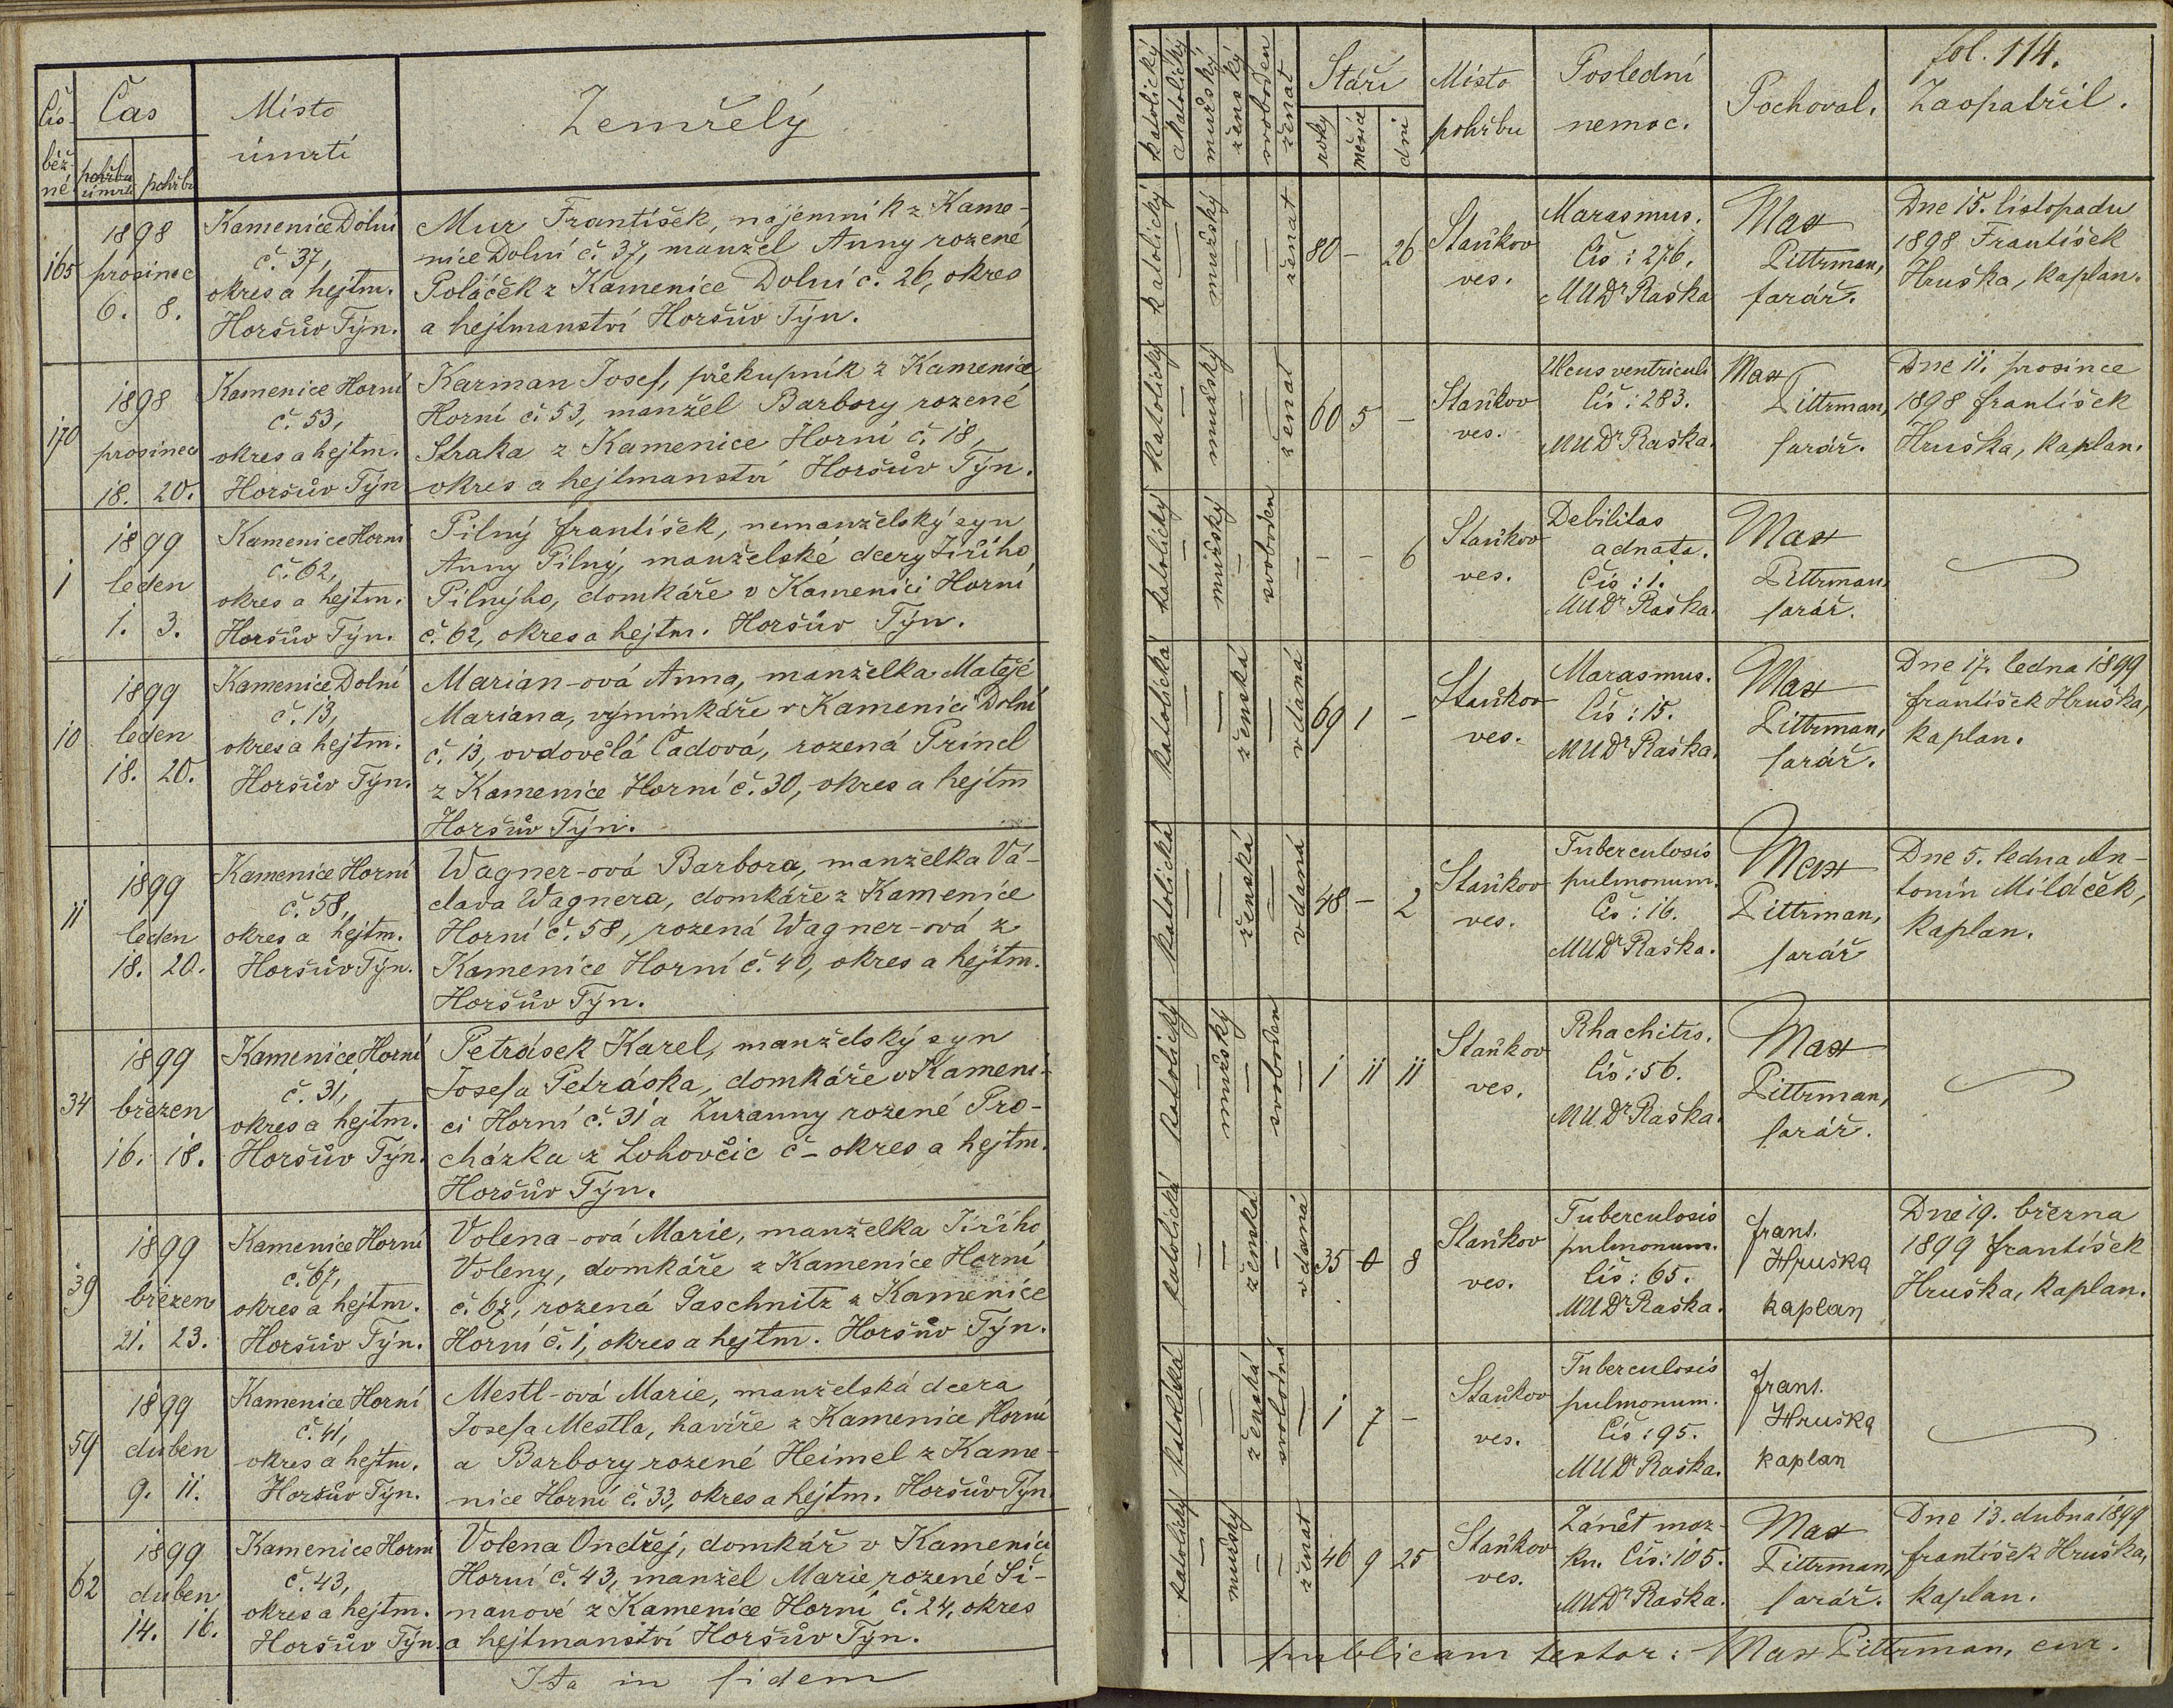 Čís-
běž-
né.
Čas
pohřbu
úmrtí
pohřbu
Místo
úmrtí
Zemřelý
165
1898
prosinec
6. 8.
Kamenice Dolní
č. 37,
okres a hejtm.
Horšův Týn.
Mur František, nájemník z Kame-
nice Dolní č. 37, manžel Anny rozené
Poláček z Kamenice Dolní č. 26, okres
a hejtmanství Horšův Týn.
170
1898
prosinec
18. 20.
Kamenice Horní
č. 53,
okres a hejtm.
Horšův Týn
Karman Josef, překupník z Kamenice
Horní č. 53, manžel Barbory rozené
Straka z Kamenice Horní č. 18,
okres a hejtmanství Horšův Týn.
1
1899
leden
1. 3.
Kamenice Horní
č. 62,
okres a hejtm.
Horšův Týn.
Pilný František, nemanželský syn
Anny Pilný, manželské dcery Jiřího
Pilnýho, domkáře v Kamenici Horní
č. 62, okres a hejtm. Horšův Týn.
10
1899
leden
18. 20.
Kamenice Dolní
č. 13,
okres a hejtm.
Horšův Týn.
Marian-ová Anna, manželka Matěje
Mariana, výminkáře v Kamenici Dolní
č. 13, ovdovělá Čadová, rozená Princl
z Kamenice Horní č. 30, okres a hejtm
Horšův Týn.
11
1899
leden
18. 20.
Kamenice Horní
č. 58,
okres a hejtm.
Horšův Týn.
Wagner-ová Barbora, manželka Vá-
clava Wagnera, domkáře z Kamenice
Horní č. 58, rozená Wagner-ová z
Kamenice Horní č. 40, okres a hejtm.
Horšův Týn.
34
1899
březen
16. 18.
Kamenice Horní
č. 31,
okres a hejtm.
Horšův Týn.
Petrásek Karel, manželský syn
Josefa Petráska, domkáře v Kameni-
ci Horní č. 31 a Zuzanny rozené Pro-
cházka z Lohovčic č - okres a hejtm.
Horšův Týn.
39
1899
březen
21. 23.
Kamenice Horní
č. 67,
okres a hejtm.
Horšův Týn.
Volena-ová Marie, manželka Jiřího
Voleny, domkáře z Kamenice Horní
č. 67, rozená Gaschnitz z Kamenice
Horní č. 1, okres a hejtm. Horšův Týn.
59
1899
duben
9. 11.
Kamenice Horní
č. 41,
okres a hejtm.
Horšův Týn.
Mestl-ová Marie, manželská dcera
Josefa Mestla, havíře z Kamenice Horní
a Barbory rozené Heimel z Kame-
nice Horní č. 33, okres a hejtm. Horšův Týn.
62
1899
duben
14. 16.
Kamenice Horní
č. 43,
okres a hejtm.
Horšův Týn.
Volena Ondřej, domkář v Kamenici
Horní č. 43, manžel Marie rozené Ši-
manové z Kamenice Horní č. 24, okres
a hejtmanství Horšův Týn.
Ita in fidem
fol. 114.
katolický
akatolický
mužský
ženský
svoboden
ženat
Stáří
roky
měsíce
dni
Místo
pohřbu
Poslední
nemoc.
Pochoval.
Zaopatřil.
katolický
—
mužský
—
—
ženat
80 - 26
Staňkov
ves.
Marasmus.
Čís: 276.
MUDr Raška
Max
Pittrman,
farář.
Dne 15. listopadu
1898 František
Hruška, kaplan.
katolický
—
mužský
—
—
ženat
60 5 -
Staňkov
ves.
Ulcus ventriculi
Čís: 283.
MUDr Raška.
Max
Pittrman,
farář.
Dne 11. prosince
1898 František
Hruška, kaplan.
katolický
—
mužský
—
svoboden
—
- - 6
Staňkov
ves.
Debilitas
adnata.
Čís: 1.
MUDr Raška.
Max
Pittrman,
farář.
katolická
—
—
ženská
—
vdaná
69 1 -
Staňkov
ves.
Marasmus.
Čís: 15.
MUDr Raška.
Max
Pittrman,
farář.
Dne 17. ledna 1899
František Hruška,
kaplan.
katolická
—
—
ženská
—
vdaná
48 - 2
Staňkov
ves.
Tuberculosis
pulmonum.
Čís: 16.
MUDr Raška.
Max
Pittrman,
farář
Dne 5. ledna An-
tonín Miláček,
kaplan.
katolický
—
mužský
—
svoboden
—
1 11 11
Staňkov
ves.
Rhachitis.
Čís: 56.
MUDr Raška.
Max
Pittrman,
farář.
katolická
—
—
ženská
—
vdaná
35 0 8
Staňkov
ves.
Tuberculosis
pulmonum.
Čís: 65.
MUDr Raška.
Frant.
Hruška
kaplan
Dne 19. března
1899 František
Hruška, kaplan.
katolická
—
—
ženská
svobodná
—
1 7 -
Staňkov
ves.
Tuberculosis
pulmonum.
Čís: 95.
MUDr Raška.
Frant.
Hruška
kaplan
katolický
—
mužský
—
—
ženat
46 9 25
Staňkov
ves.
Zánět moz-
ku. Čís: 105.
MUDr Raška.
Max
Pittrman,
farář.
Dne 13. dubna 1899
František Hruška,
kaplan.
publicam testor: Max Pittrman, cur.